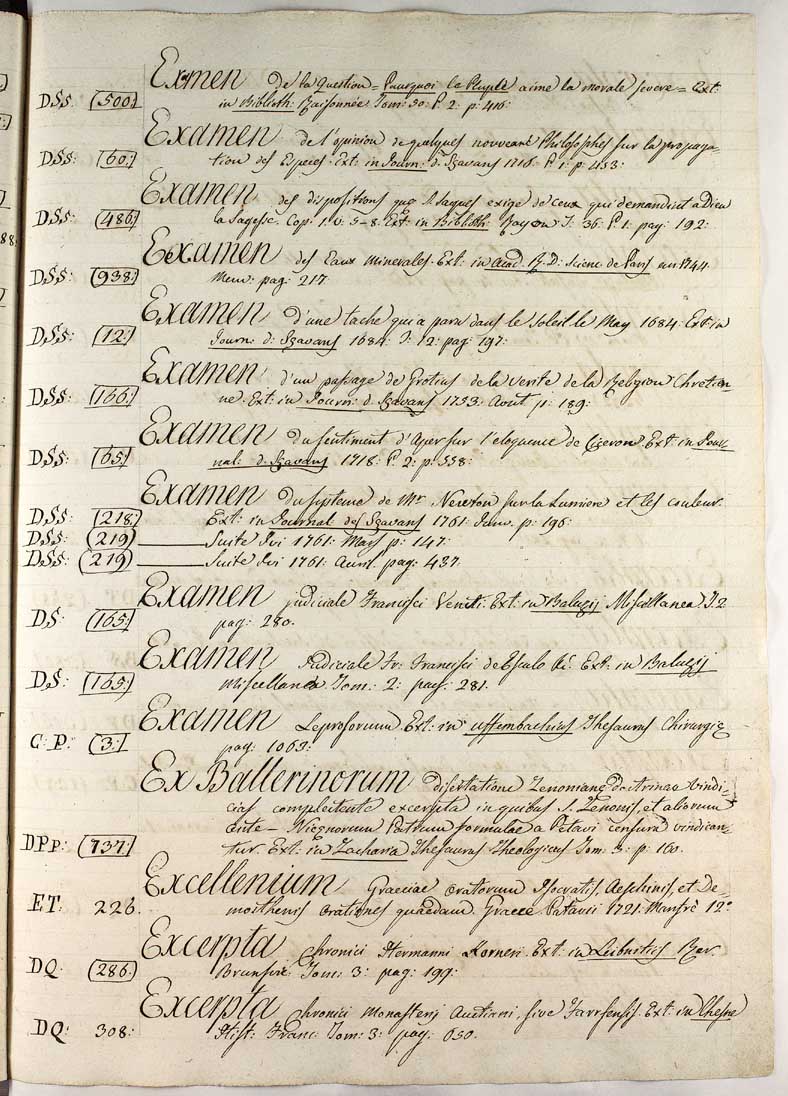 Examen de la Question = Pourquoi le Peuple aime la morale severe = Ext:
DSS: (500:) in Biblioth: Raisonnée Tom: 50: P. 2: p: 416:
Examen de l'opinion de quelques nouveaux Philosophes sur la propaga-
DSS: (60:) tion des Especes. Ext: in Journ: d: Szavans 1718. P. 1: p: 453:
Examen des dispositions que le Sages exige de ceux qui demandent a Dieu
DSS: (486:) la Sagesse. Cap: 1. v: 5-8. Ext: in Biblioth: Rayon T: 36. P. 1: pag: 192:
Examen des Eaux Minerales. Ext: in Acad: R. D: Scienc: de Paris an 1744.
DSS: (938:) Mem: pag: 217.
Examen d'une tache qui a paru dans le Soleil le May 1684. Ext: in
DSS: (12:) Journ: d: Szavans 1684. T: 12: pag: 197:
Examen d'un passage de Grotius de la verité de la Religion Chretien-
DSS: (166:) ne. Ext: in Journ: d: Szavans 1753: Aout p: 189:
Examen du sentiment d'Aper sur l'eloquence de Cizeron. Ext: in Jour-
DSS: (65:) nal: d: Szavans 1718. P. 2: p: 558:
Examen du systeme de Mr Newton sur la Lumiere et les couleur.
DSS: (218:) Ext: in Journal des Szavans 1761: Janv: p: 196:
DSS: (219) Suite Ivi 1761: Mars p: 147:
DSS: (219) Suite Ivi 1761: Avril. pag: 437:
Examen judiciale Francisci Veniti. Ext: in Baluzij Miscellanea T. 2
DS: (165:) pag: 280.
Examen Judiciale Fr: Francisci de Esculo Ext: in Baluzij
DS: (165:) Miscellanea Tom: 2: pag: 281.
Examen Leprosorum. Ext: in Uffembachius Thesaurus Chirurgię
C: P: (3:) pag: 1063:
Ex Ballerinorum dissertatione Zenonianę doctrinae vindi-
cias complectente excerpta in quibus S. Zenonis, et aliorum
Ante-Nicęnorum Patrum formulae a Petavi censura vindican-
DPp: (737:) tur. Ext: in Zacharia Thesaurus Theologicus Tom: 3: p: 160.
Excellenium Graeciae Oratorum Isocratis, Aeschinis, et De-
ET: 226. mosthenis Orationes quaedam. Graece. Patavii 1721. Manfrè 12°
Excerpta Chronici Hermanni Korneri. Ext: in Leibnitius Rer.
DQ. (286.) Brunsvic: Tom: 3: pag: 199:
Excerpta Chronici Monasterij Auctiani, sive Farrfensis. Ext: in Chesne
DQ: 308: Hist: Franc: Tom: 3: pag: 650.